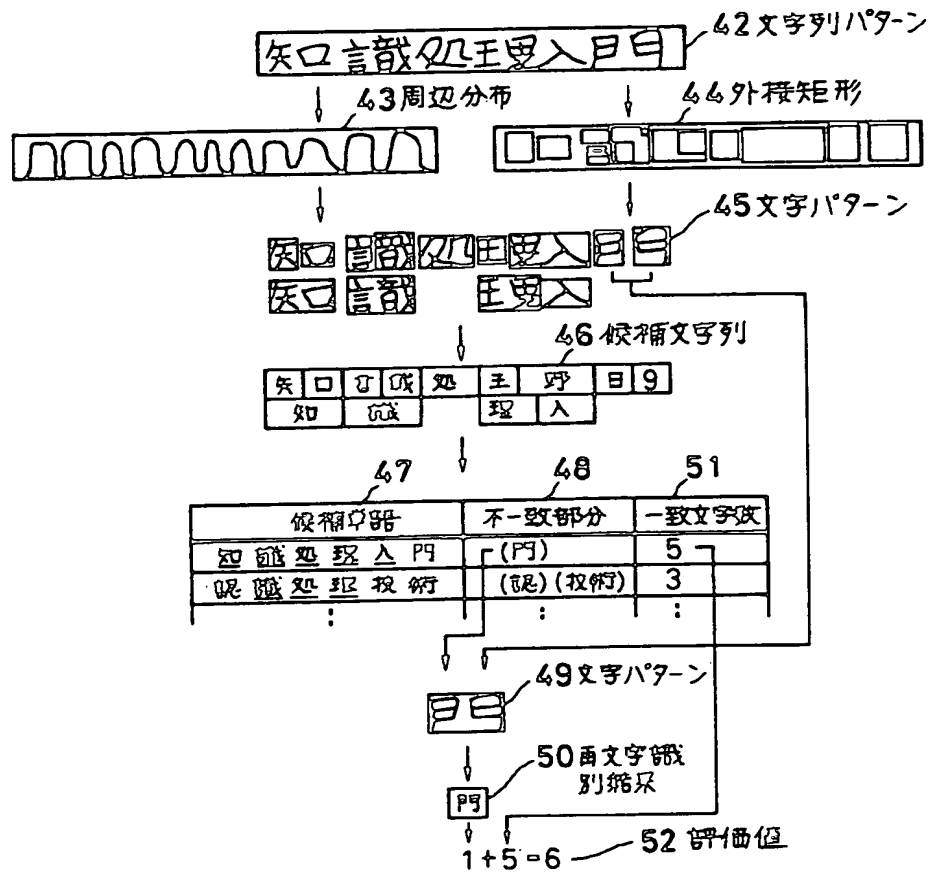 知識処理入門
42文字列パターン
43周辺分布
44外接矩形
45文字パターン
矢口言哉処王里入
矢口言哉王里入
46候補文字列
矢 口 言 哉 処 王 野 日 9
知 識 理 入
47 48 51
候補単語 不一致部分 一致文字数
知識処理入門 (門) 5
認識処理技術 (認)(技術) 3
: : :
49文字パターン
50再文字識
別結果
門
1+5=6
52評価値